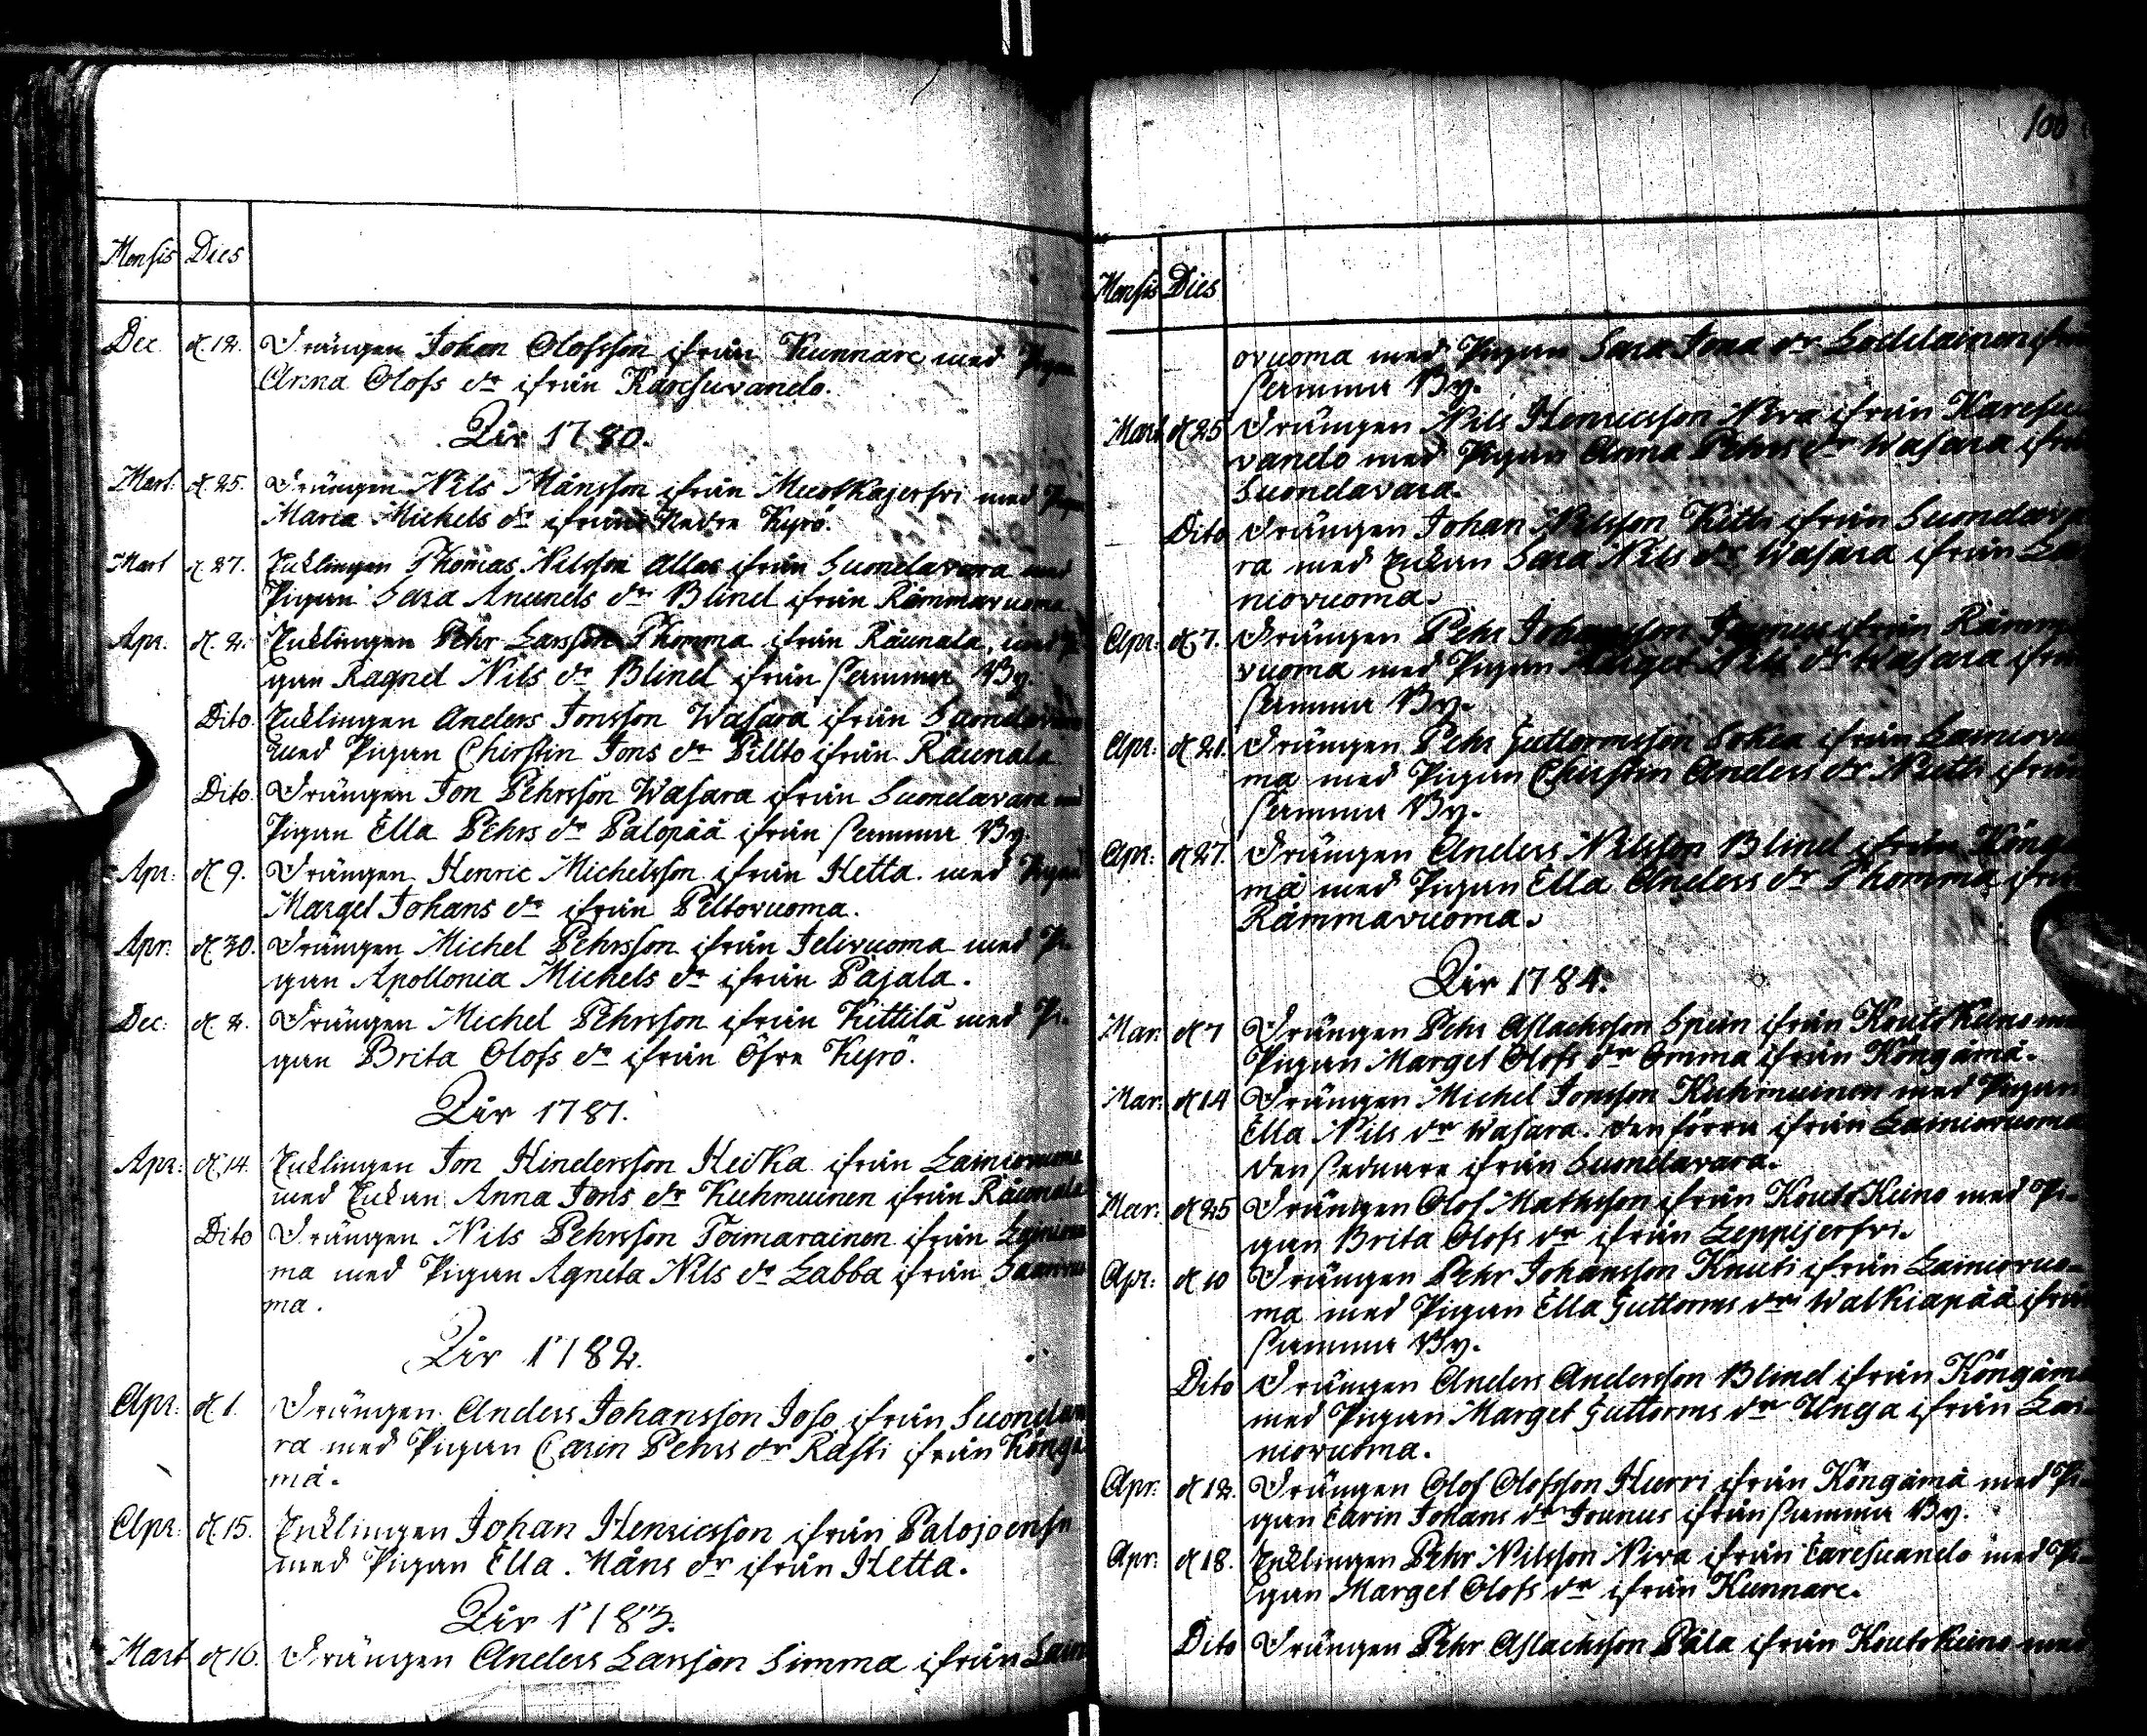 Mensis Dies
Dec. d. 12. Drängen Johan Olofsson ifrån Kunnare med Pigan
Anna Olofs dr ifrån Karesuvando.
År 1780.
Mart. d. 25. Drängen Nils Månsson ifrån Muotkajerfvi med
Maria Michels dr ifrån Nedre Kyrö.
Mart d. 27. Encklingen Thomas Nilsson Allas ifrån Suondavara med
Pigan Sara Anunds dr Blind ifrån Rommavuoma
Apr. d. 2. Encklingen Pehr Larsson Thomma ifrån Råunala, med Pi
gan Ragnel Nils dr Blind ifrån samma By.
Dito Encklingen Anders Jonsson Wasara ifrån Suondavara
med Pigan Chirstin Jons dr Pillto ifrån Råunala
Dito. Drängen Jon Pehrsson Wasara ifrån Suondavara med
Pigan Ella Pehrs dr Palopää ifrån samma By.
Apr: d. 9. Drängen Henric Michelsson ifrån Hetta med Pigan
Marget Johans dr ifrån Peltovuoma.
Apr: d. 30. Drängen Michel Pehrsson ifrån Jelivuoma med Pi
gan Apollonia Michels dr ifrån Pajala.
Dec: d. 2. Drängen Michel Pehrsson ifrån Kittilä med Pi-
gan Brita Olofs dr ifrån Öfre Kyrö.
År 1781.
Apr: d. 14. Encklingen Jon Hindersson Heika ifrån Lainiovuoma
med Enckan Anna Jons dr Kuhmuinen ifrån Råunala
Dito Drängen Nils Pehrsson Toimarainen ifrån
ma med Pigan Agneta Nils dr Labba ifrån
ma.
År 1782.
Apr: d. 1. Drängen Anders Johansson Joso ifrån Suondava
ra med Pigan Carin Pehrs dr Rasti ifrån Köngä
mä.
Apr: d. 15. Encklingen Johan Henricsson ifrån Palojoensu
med Pigan Ella Måns dr ifrån Hetta.
År 1783.
Mart d. 16. Drängen Anders Larsson Simma ifrån Laini
100
Mensis Dies
ovuoma med Pigan Sara Jona dr ifrån
samma By.
Mart d. 25 Drängen Nils Henricsson ifrån Karesu
vando med Pigan Anna Pehrs dr Wasara ifrån
Suondavara.
Dito Drängen Johan Nilsson ifrån Suondava
ra med Enckan Sara Nils dr Wasara ifrån Lai
niovuoma.
Apr: d. 7. Drängen Pehr Johansson ifrån Romma
vuoma med Pigan Marget Nils dr Wasara ifrån
samma By.
Apr: d. 21. Drängen Pehr Guttormsson ifrån Lainiovuo
ma med Pigan Chirstin Anders dr ifrån
samma By.
Apr: d. 27. Drängen Anders Nilsson Blind ifrån Köngä
mä med Pigan Ella Anders dr Thomma ifrån
Rommavuoma.
År 1784.
Mar. d. 7 Drängen Pehr Aslachsson Spein ifrån KoutoKeino med
Pigan Marget Olofs dr Omma ifrån Köngämä.
Mar: d. 14 Drängen Michel Jonsson Kuhmuinen med Pigan
Ella Nils dr Wasara. den förra ifrån Lainiovuoma
den sednare ifrån Suondavara.
Mar: d. 25 Drängen Olof Mathsson ifrån KoutoKeino med Pi-
gan Brita Olofs dr ifrån Leppejerfvi.
Apr: d. 10 Drängen Pehr Johansson Knuti ifrån Lainiovuo-
ma med Pigan Ella Guttorms dr Walkiapää ifrån
samma By.
Dito Drängen Anders Andersson Blind ifrån Köngämä
med Pigan Marget Guttorms dr Unga ifrån Lai-
niovuoma.
Apr: d. 12. Drängen Olof Olofsson Hurri ifrån Köngämä med Pi-
gan Carin Johans dr Jounus ifrån samma By.
Apr: d. 18. Encklingen Pehr Nilsson Niva ifrån Caresuando med Pi-
gan Marget Olofs dr ifrån Kunnare.
Dito Drängen Pehr Aslachsson Påla ifrån Koutokeino med